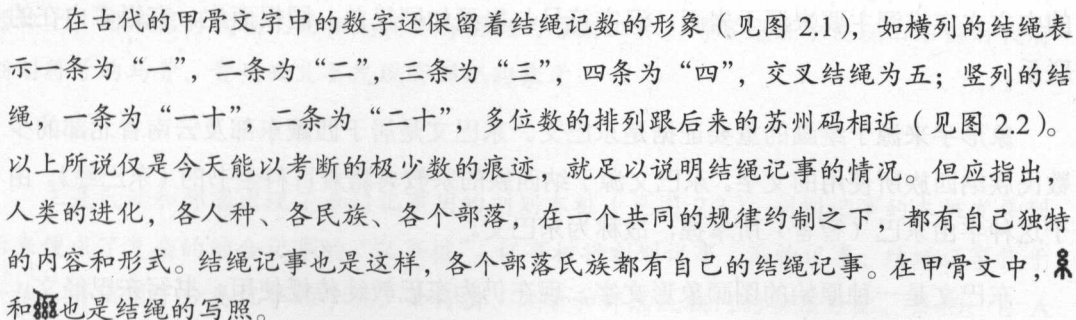 在古代的甲骨文字中的数字还保留着结绳记数的形象（见图 2.1），如横列的结绳表
示一条为“一”，二条为“二”，三条为“三”，四条为“四”，交叉结绳为五；竖列的结
绳，一条为“一十”，二条为“二十”，多位数的排列跟后来的苏州码相近（见图 2.2）。
以上所说仅是今天能以考断的极少数的痕迹，就足以说明结绳记事的情况。但应指出，
人类的进化，各人种、各民族、各个部落，在一个共同的规律约制之下，都有自己独特
的内容和形式。结绳记事也是这样，各个部落氏族都有自己的结绳记事。在甲骨文中，
和也是结绳的写照。